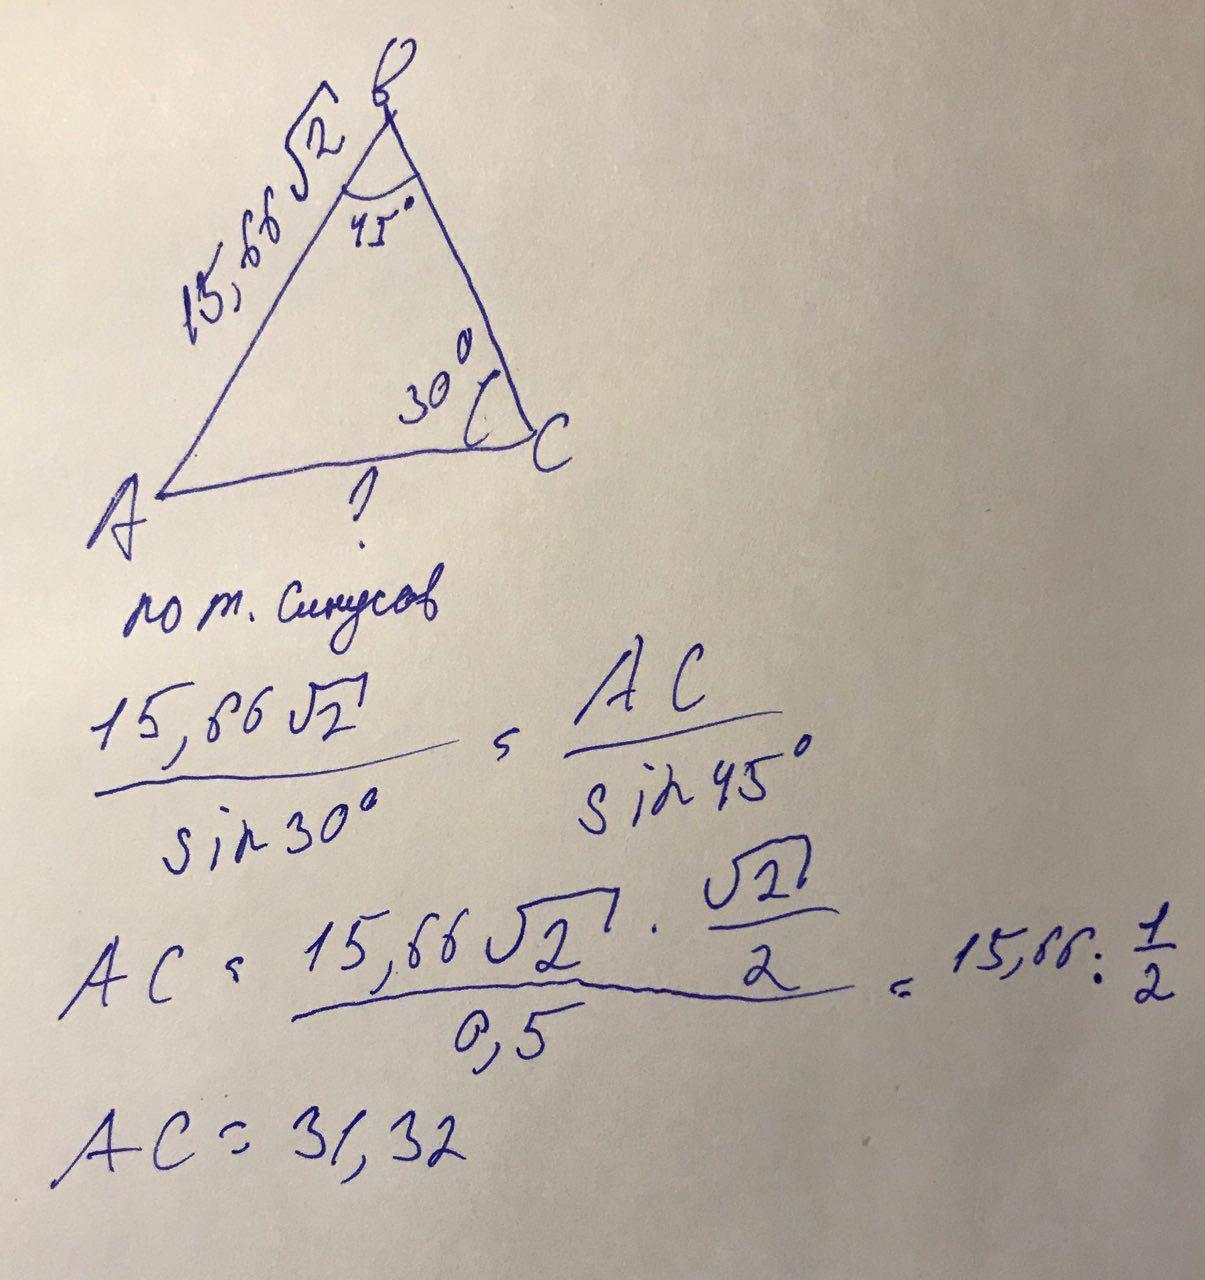 B
15,66√2
45°
30°
A
C
?
по т. синусов
15,66√2 / sin 30° = AC / sin 45°
AC = 15,66√2 · √2/2 / 0,5 = 15,66 : 1/2
AC = 31,32